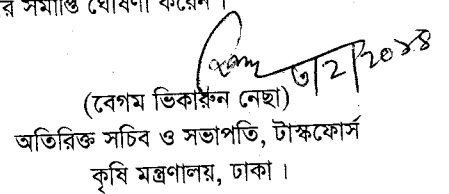 র সমাপ্তি ঘোষণা করেন।
৩/2/2০১৪
(বেগম ভিকারুন নেছা)
অতিরিক্ত সচিব ও সভাপতি, টাস্কফোর্স
কৃষি মন্ত্রণালয়, ঢাকা।